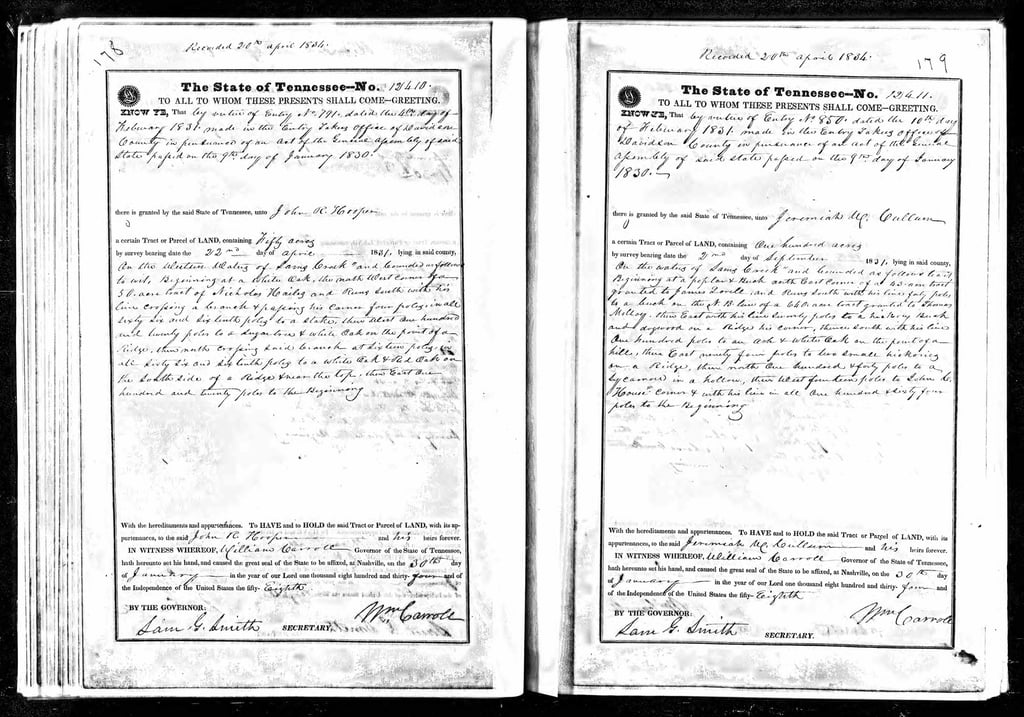 178
Recorded 20th april 1834.
The State of Tennessee—No. 12,410.
TO ALL TO WHOM THESE PRESENTS SHALL COME—GREETING.
KNOW YE, That by virtue of Entry No. 791. dated the 4th day of
February 1831. made in the Entry Takers Office of Davidson
County in pursuance of an Act of the General assembly of said
State passed on the 9th day of January 1830.
there is granted by the said State of Tennessee, unto John R. Hooper
a certain Tract or Parcel of LAND, containing Fifty acres
by survey bearing date the 22nd day of april 1831, lying in said county,
On the Western Waters of Sams Creek and bounded as follows
to wit, Beginning at a White Oak, the north West corner of a
50. acre tract of Nicholas and Runs South with his
line crossing a branch & passing his Corner four poles, in all
Sixty six and six tenth poles to a stake, then West One hundred
and twenty poles to a Sugartree & White Oak on the point of a
Ridge, then north crossing said branch at Sixteen poles, in
all Sixty Six and six tenth poles to a White Oak & Red Oak on
the South side of a Ridge & near the top, then East One
hundred and twenty poles to the Beginning
With the hereditaments and appurtenances. To HAVE and to HOLD the said Tract or Parcel of LAND, with its ap-
purtenances, to the said John R Hooper and his heirs forever.
IN WITNESS WHEREOF, William Carroll Governor of the State of Tennessee,
hath hereunto set his hand, and caused the great seal of the State to be affixed, at Nashville, on the 30th day
of January in the year of our Lord one thousand eight hundred and thirty-four and of
the Independence of the United States the fifty-Eighth
BY THE GOVERNOR: Wm Carroll
Sam G. Smith SECRETARY.
179
Recorded 20th april 1834.
The State of Tennessee—No. 12,411.
TO ALL TO WHOM THESE PRESENTS SHALL COME—GREETING.
KNOW YE, That by virtue of Entry No. 850. dated the 10th day
of February 1831. made in the Entry Takers office of
Davidson County in pursuance of an act of the General
assembly of said state passed on the 9th day of January
1830.
there is granted by the said State of Tennessee, unto Jeremiah Mc. Cullum
a certain Tract or Parcel of LAND, containing One hundred acres
by survey bearing date the 2nd day of September 1831, lying in said county,
On the waters of Sams Creek and bounded as follows to wit,
Beginning at a poplar & Buck East Corner of a 43. acre tract
granted to James and Runs South with his line poles
to a buck on the N. B. line of a 640. acre tract granted to Thomas
Molloy, then East with his line twenty poles to a hickory Buck
and dogwood on a Ridge his corner, thence south with his line
One hundred poles to an Ash & White Oak on the point of a
hill, then East ninety four poles to two small hickories
on a Ridge, then north One hundred & forty poles to a
Sycamore in a hollow, then West fourteen poles to John C.
House's corner & with his line in all One hundred & sixty four
poles to the Beginning
With the hereditaments and appurtenances. To HAVE and to HOLD the said Tract or Parcel of LAND, with its
appurtenances, to the said Jeremiah Mc. Cullum and his heirs forever.
IN WITNESS WHEREOF, William Carroll Governor of the State of Tennessee,
hath hereunto set his hand, and caused the great seal of the State to be affixed, at Nashville, on the 30th day
of January in the year of our Lord one thousand eight hundred and thirty-four and
of the Independence of the United States the fifty-Eighth
BY THE GOVERNOR: Wm Carroll
Sam G. Smith SECRETARY.